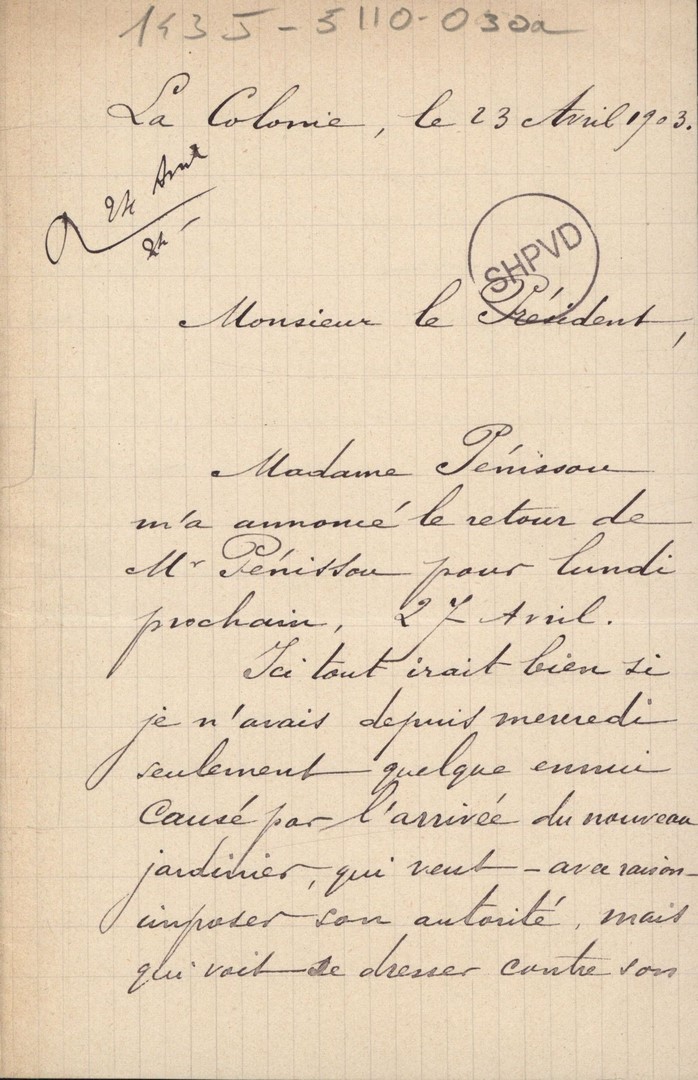 1435-5110-030a
La Colonie, le 23 Avril 1903.
R 24 Avril
24
SHPVD
Monsieur le Président,
Madame Pénissou
m'a annoncé le retour de
Mr Pénissou pour lundi
prochain, 27 Avril.
Ici tout irait bien si
je n'avais depuis mercredi
seulement quelque ennui
causé par l'arrivée du nouveau
jardinier, qui veut - avec raison -
imposer son autorité, mais
qui voit se dresser contre son